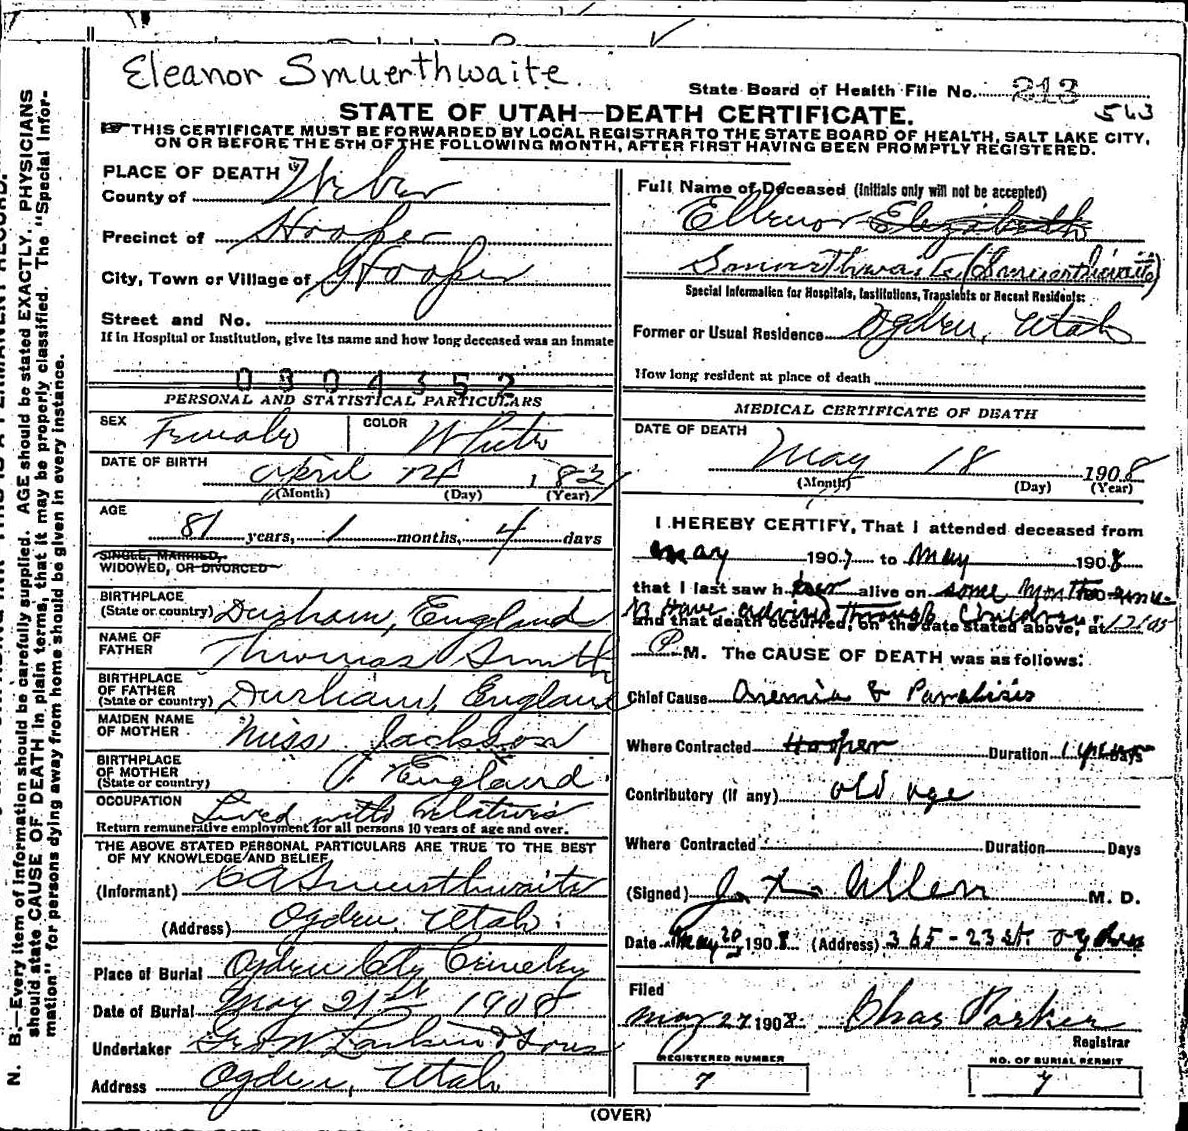 Eleanor Smuerthwaite
State Board of Health File No. 213
563
STATE OF UTAH—DEATH CERTIFICATE.
THIS CERTIFICATE MUST BE FORWARDED BY LOCAL REGISTRAR TO THE STATE BOARD OF HEALTH, SALT LAKE CITY,
ON OR BEFORE THE 5TH OF THE FOLLOWING MONTH, AFTER FIRST HAVING BEEN PROMPTLY REGISTERED.
PLACE OF DEATH
County of Weber
Precinct of Hooper
City, Town or Village of Hooper
Street and No.
If in Hospital or Institution, give its name and how long deceased was an inmate
0304352
PERSONAL AND STATISTICAL PARTICULARS
SEX Female COLOR White
DATE OF BIRTH April 14 182
(Month) (Day) (Year)
AGE
81 years, 1 months, 4 days
SINGLE, MARRIED,
WIDOWED, OR DIVORCED
BIRTHPLACE
(State or country) Durham, England
NAME OF
FATHER Thomas Smith
BIRTHPLACE
OF FATHER
(State or country) Durham, England
MAIDEN NAME
OF MOTHER Miss Jackson
BIRTHPLACE
OF MOTHER
(State or country) England
OCCUPATION Lived with relatives
Return remunerative employment for all persons 10 years of age and over.
THE ABOVE STATED PERSONAL PARTICULARS ARE TRUE TO THE BEST
OF MY KNOWLEDGE AND BELIEF
(Informant) Smuerthwaite
(Address) Ogden, Utah
Place of Burial Ogden City Cemetery
Date of Burial May 21st 1908
Undertaker Geo W Larkin & Sons
Address Ogden, Utah
Full Name of Deceased (Initials only will not be accepted)
Ellenor Elizabeth
Smurthwaite (Smuerthwaite)
Special Information for Hospitals, Institutions, Transients or Recent Residents:
Former or Usual Residence Ogden, Utah
How long resident at place of death
MEDICAL CERTIFICATE OF DEATH
DATE OF DEATH
May 18 1908
(Month) (Day) (Year)
I HEREBY CERTIFY, That I attended deceased from
May 1907 to May 1908
that I last saw her alive on some months since
have advised through Children
and that death occurred, on the date stated above, at 12:05
P M. The CAUSE OF DEATH was as follows:
Chief Cause Anemia & Paralisis
Where Contracted Hooper Duration 1 year Days
Contributory (if any) old age
Where Contracted Duration Days
(Signed) Allen M. D.
Date May 20 1908 (Address) 365-23 st. Ogden
Filed
May 27 1908 Chas Parker
Registrar
REGISTERED NUMBER
7
NO. OF BURIAL PERMIT
7
(OVER)
N. B.—Every item of information should be carefully supplied. AGE should be stated EXACTLY. PHYSICIANS
should state CAUSE OF DEATH in plain terms, that it may be properly classified. The "Special Infor-
mation" for persons dying away from home should be given in every instance.